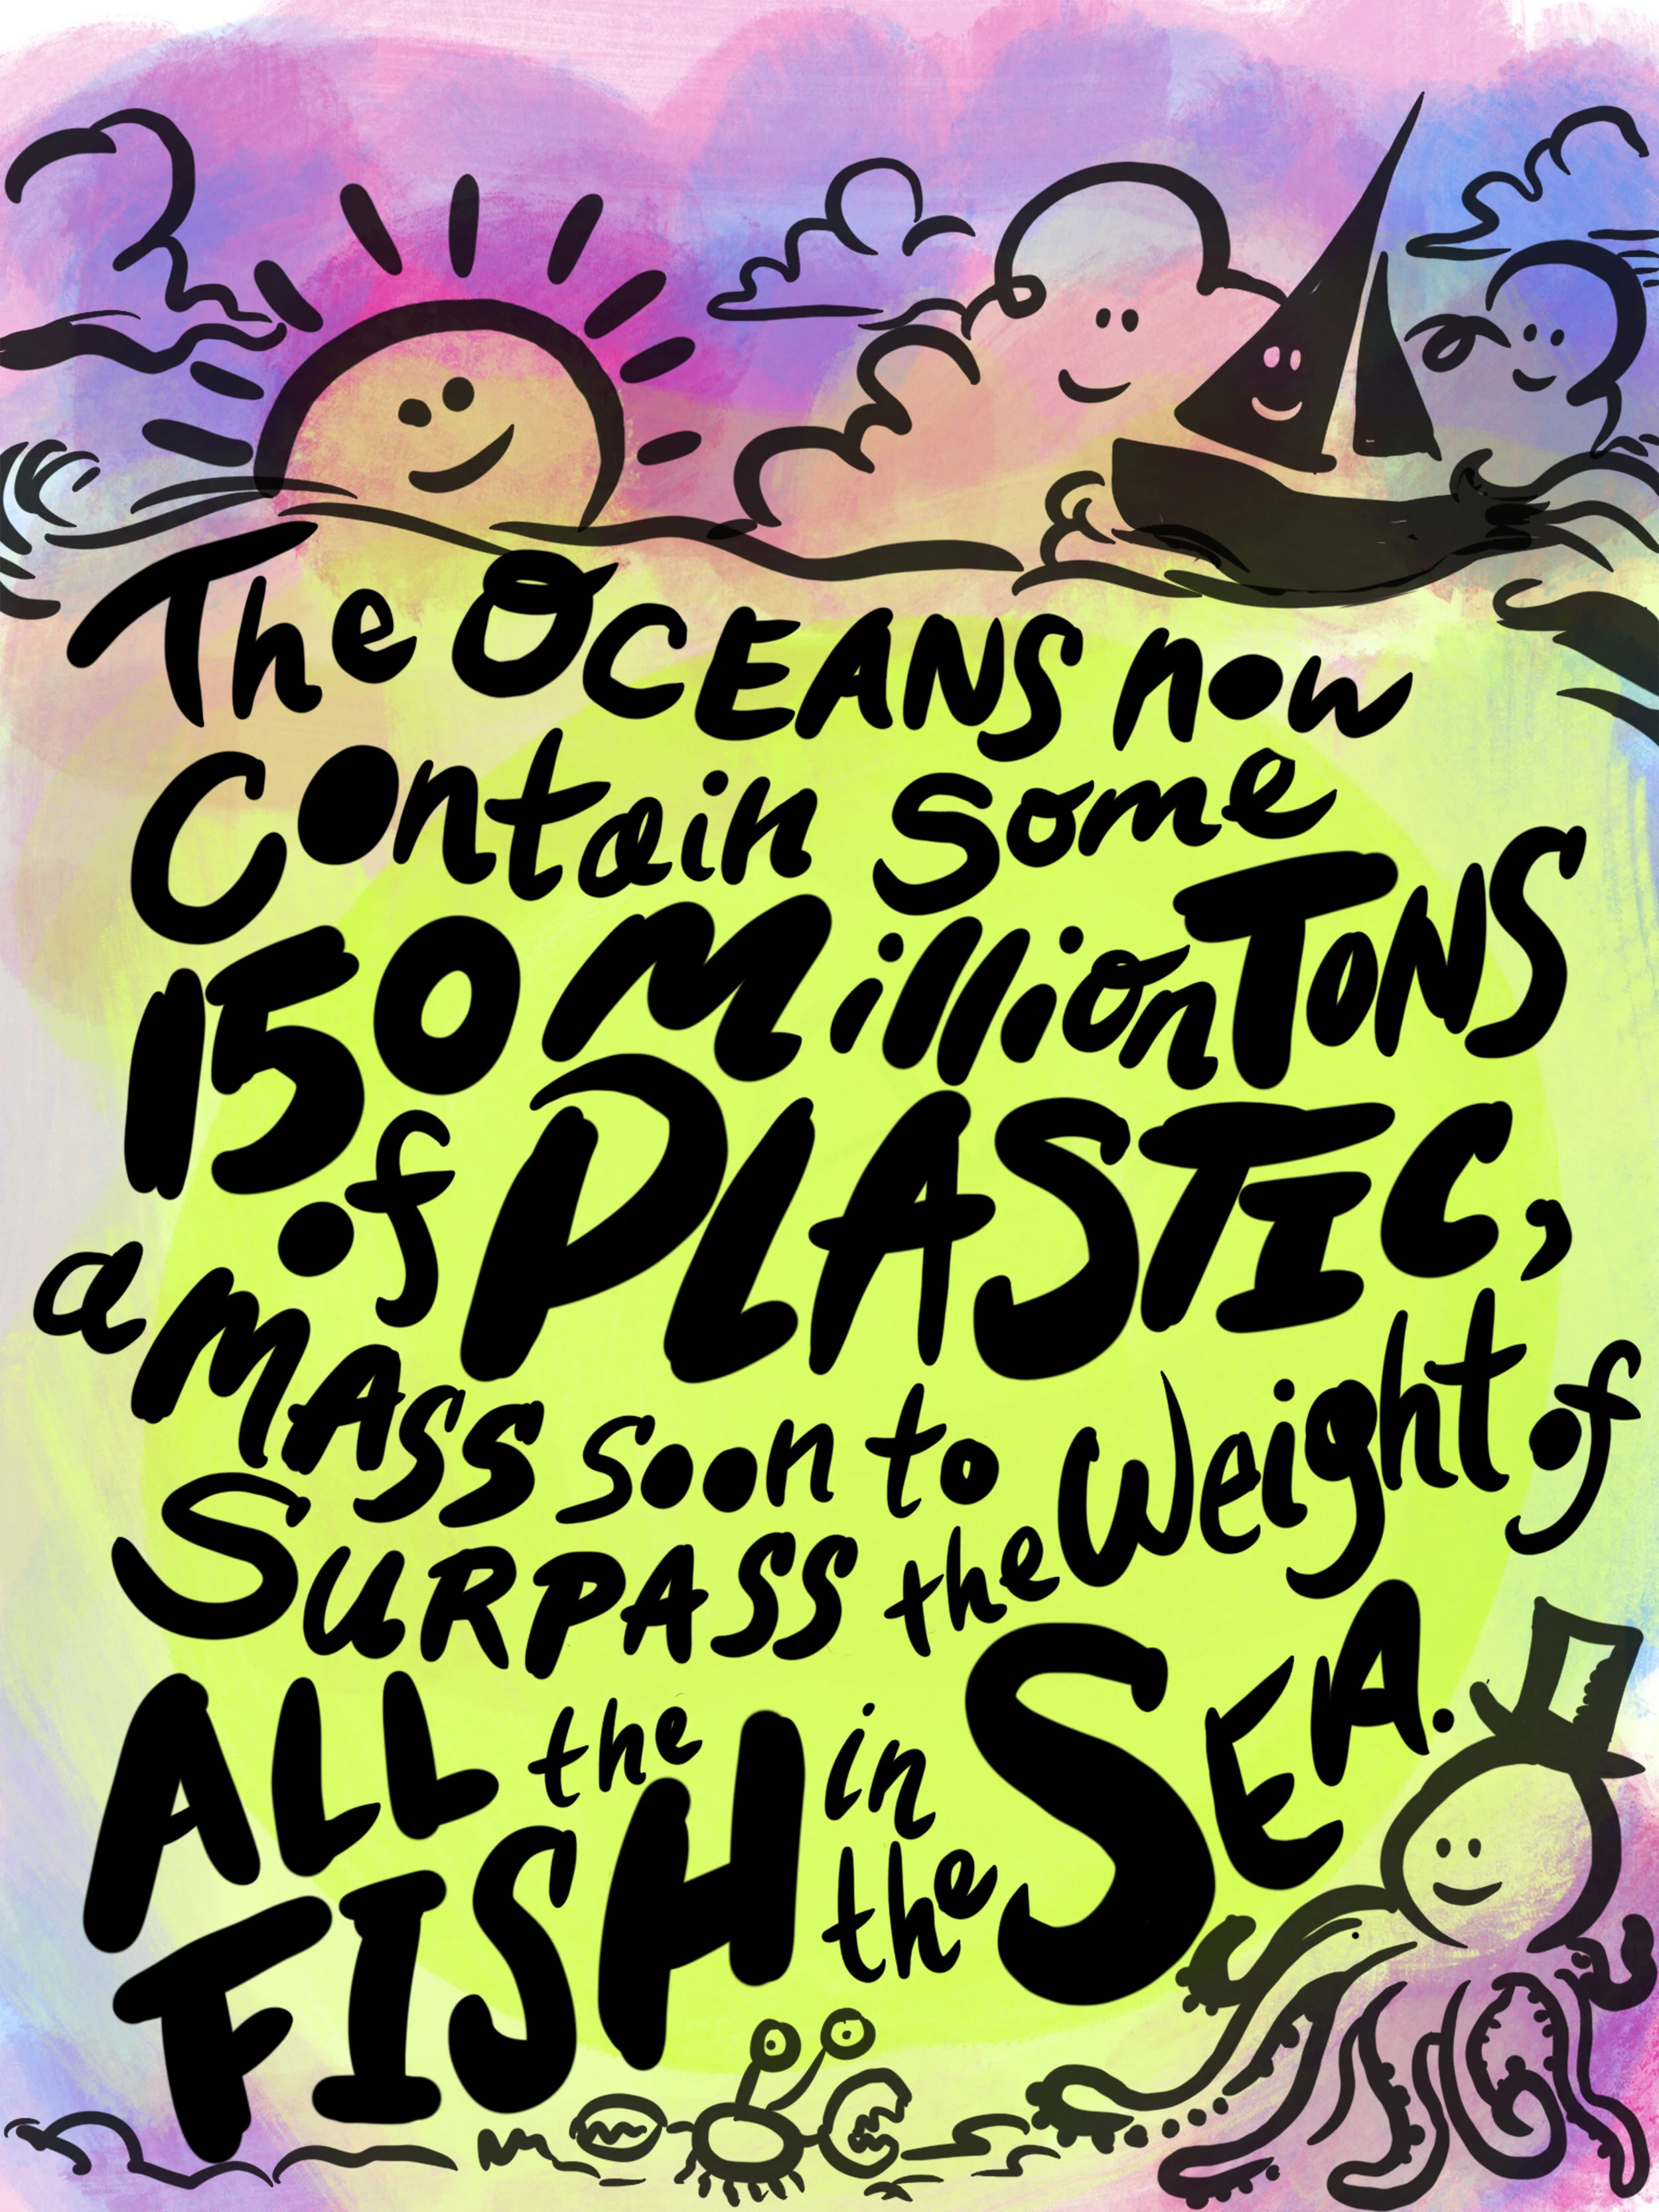 The OCEANS now
Contain some
150 Million TONS
of PLASTIC,
a MASS soon to
SURPASS the Weight of
ALL the
FISH in
the SEA.